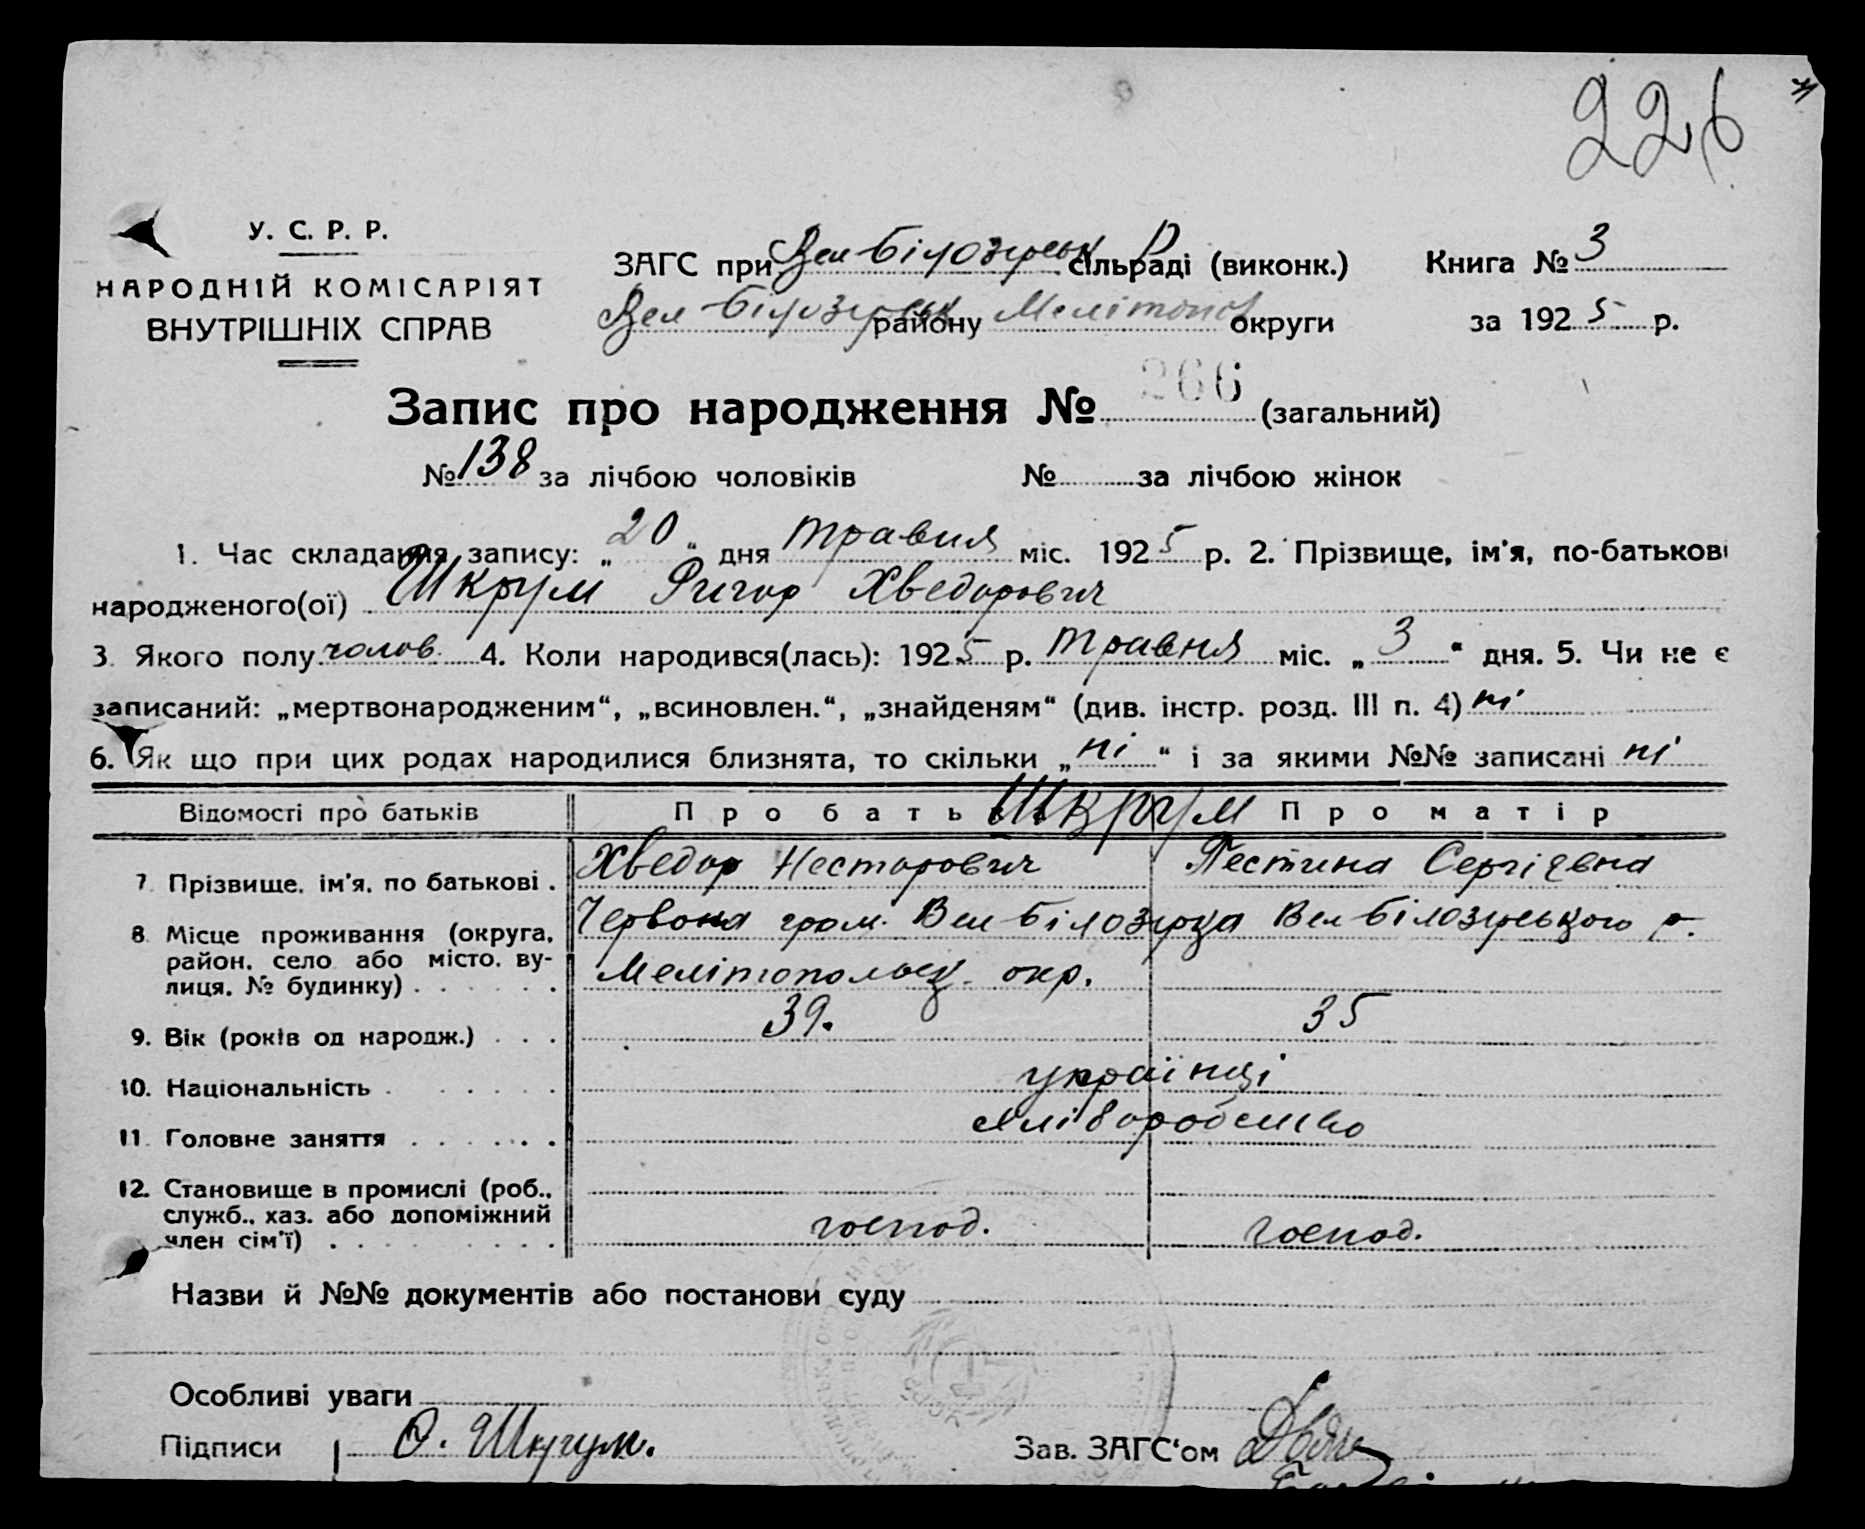 226
У. С. Р. Р.
НАРОДНІЙ КОМІСАРІЯТ
ВНУТРІШНІХ СПРАВ
ЗАГС при Вел Білозірськ сільраді (виконк.) Книга № 3
Вел Білозірськ району Мелітопол округи за 1925 р.
Запис про народження № 266 (загальний)
№ 138 за лічбою чоловіків № за лічбою жінок
1. Час складання запису: „20“ дня травня міс. 1925 р. 2. Прізвище, ім'я, по-батькові
народженого(ої) Шкрум Григор Хведорович
3. Якого полу чолов. 4. Коли народився(лась): 1925 р. травня міс. „3“ дня. 5. Чи не є
записаний: „мертвонародженим“, „всиновлен.“, „знайденям“ (див. інстр. розд. III п. 4) ні
6. Як що при цих родах народилися близнята, то скільки „ні“ і за якими №№ записані ні
Відомості про батьків Про батька Шкрум Про матір
7. Прізвище, ім'я, по батькові . Хведор Несторович Пестина Сергієвна
8. Місце проживання (округа, район, село або місто, вулиця, № будинку) . . . . . . Червона гром. Вел Білозірка Вел Білозірського р.
Мелітопольськ. окр.
9. Вік (років од народж.) . . . 39. 35
10. Національність . . . . . . українці
11. Головне заняття . . . . . . хліборобство
12. Становище в промислі (роб., служб., хаз. або допоміжний член сім'ї) . . . . . . . . господ. господ.
Назви й №№ документів або постанови суду
Особливі уваги
Підписи О. Шкрум. Зав. ЗАГС'ом